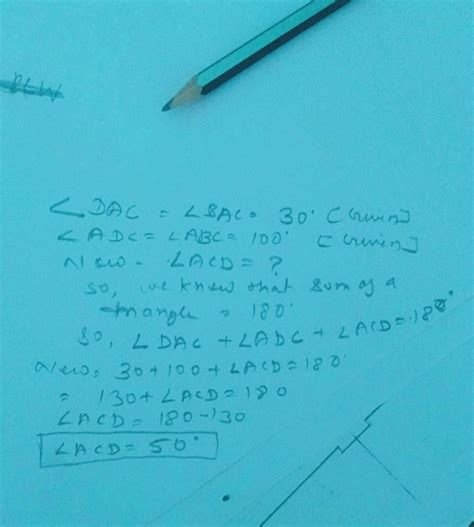 ∠DAC = ∠BAC = 30° [Given]
∠ADC = ∠ABC = 100° [Given]
Now - ∠ACD = ?
So, we know that sum of a
triangle = 180°
So, ∠DAC + ∠ADC + ∠ACD = 180°
Now = 30 + 100 + ∠ACD = 180°
= 130 + ∠ACD = 180
∠ACD = 180 - 130
∠ACD = 50°